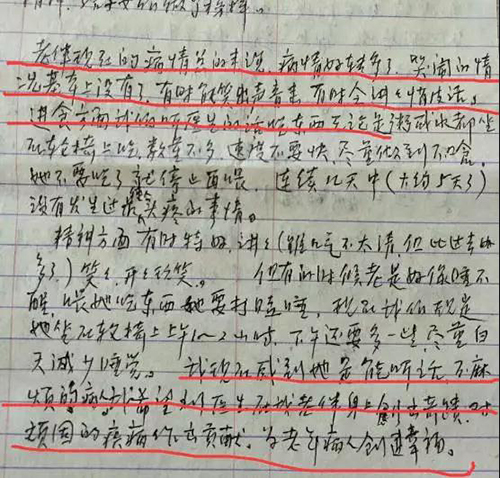 老伴现在的病情总的来说，病情好转多了，哭闹的情
况基本上没有了，有时能笑出声音来，有时会讲
进食方面我们听医生的话吃东西无论是粥或水都坐
在轮椅上吃，数量不多，速度不要快，尽量做到不呛，
她不要吃了就停止喂，连续几天中（大约5天了）
没有发生过头疼的事情。
精神方面有时特好，讲讲（虽口气不大清，但比过去
多了）笑笑，但有的时候老是好像睡不
醒，喂她吃东西她要打瞌睡，现在我们规定
她坐在轮椅上上午1～2小时，下午还要多一些，尽量白
天减少睡觉。我现在感到她是能听话不麻
烦的病人，希望刘医生在我老伴身上创出奇迹，对
顽固的疾病作出贡献，为老年病人创造幸福。